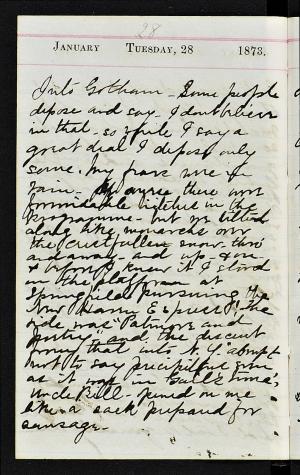 28
JANUARY TUESDAY, 28 1873.
Into Gotham - Some people
depose and say. I don't believe
in that - so while I say a
great deal I depose only
some. My fears were in
vain. there were
formidable in the
Programme - but we billed
along like monarchs over
the crust fallen snow. thro'
and away - and up - & on -
& before I knew it I stood
in the platform at
Springfield pursuing the
New Haven Express. The
ride was "Palmore" and
and the descent
from that into N.Y. abrupt
not to say precipitous
as it was in time,
Uncle Bill - on me
like a sack prepared for
sausage.